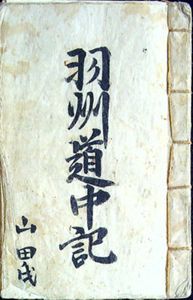 羽州道中記
山田氏